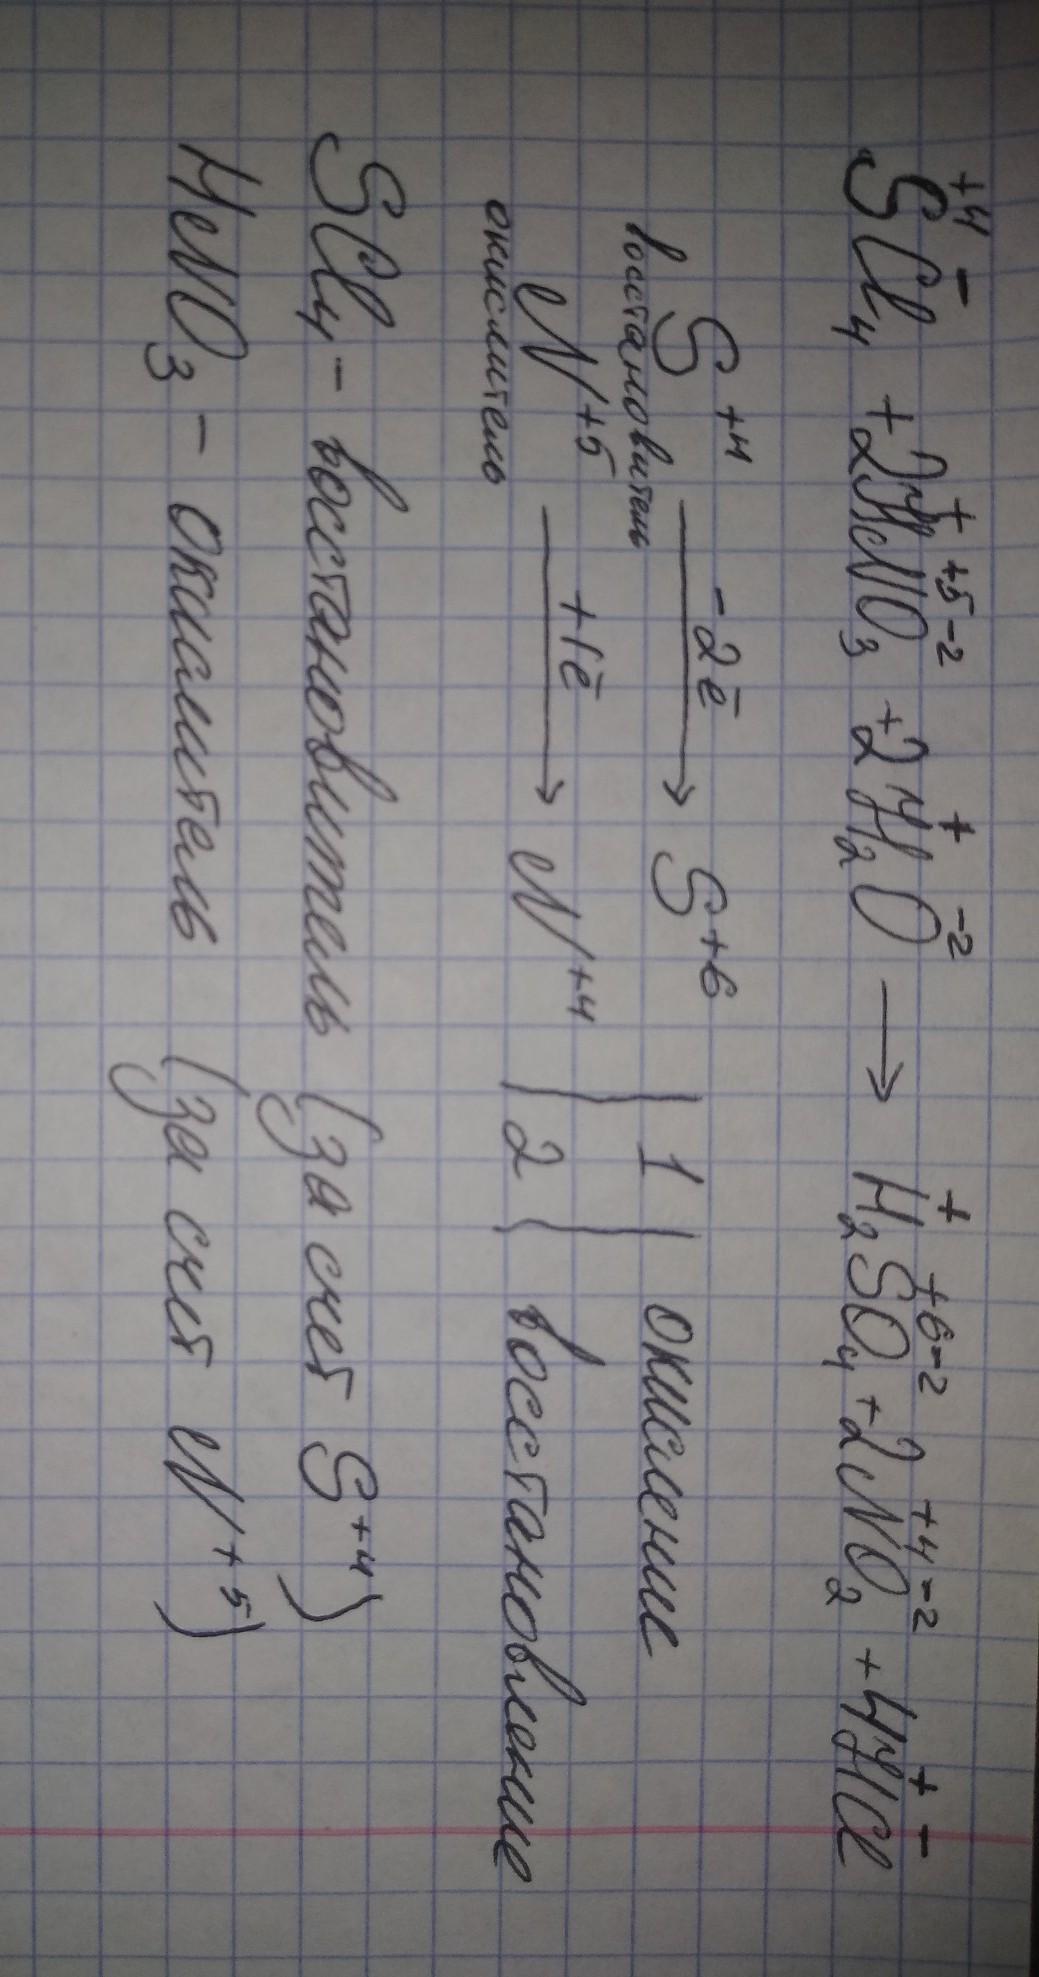 +4 - + +5 -2 + -2 + +6 -2 +4 -2 + -
SCl₄ + 2HNO₃ + 2H₂O → H₂SO₄ + 2NO₂ + 4HCl
S⁺⁴ -2ē → S⁺⁶ | 1 | окисление
востановитель
N⁺⁵ +1ē → N⁺⁴ | 2 | восстановление
окислитель
SCl₄ - востановитель (за счет S⁺⁴)
HNO₃ - окислитель (за счет N⁺⁵)